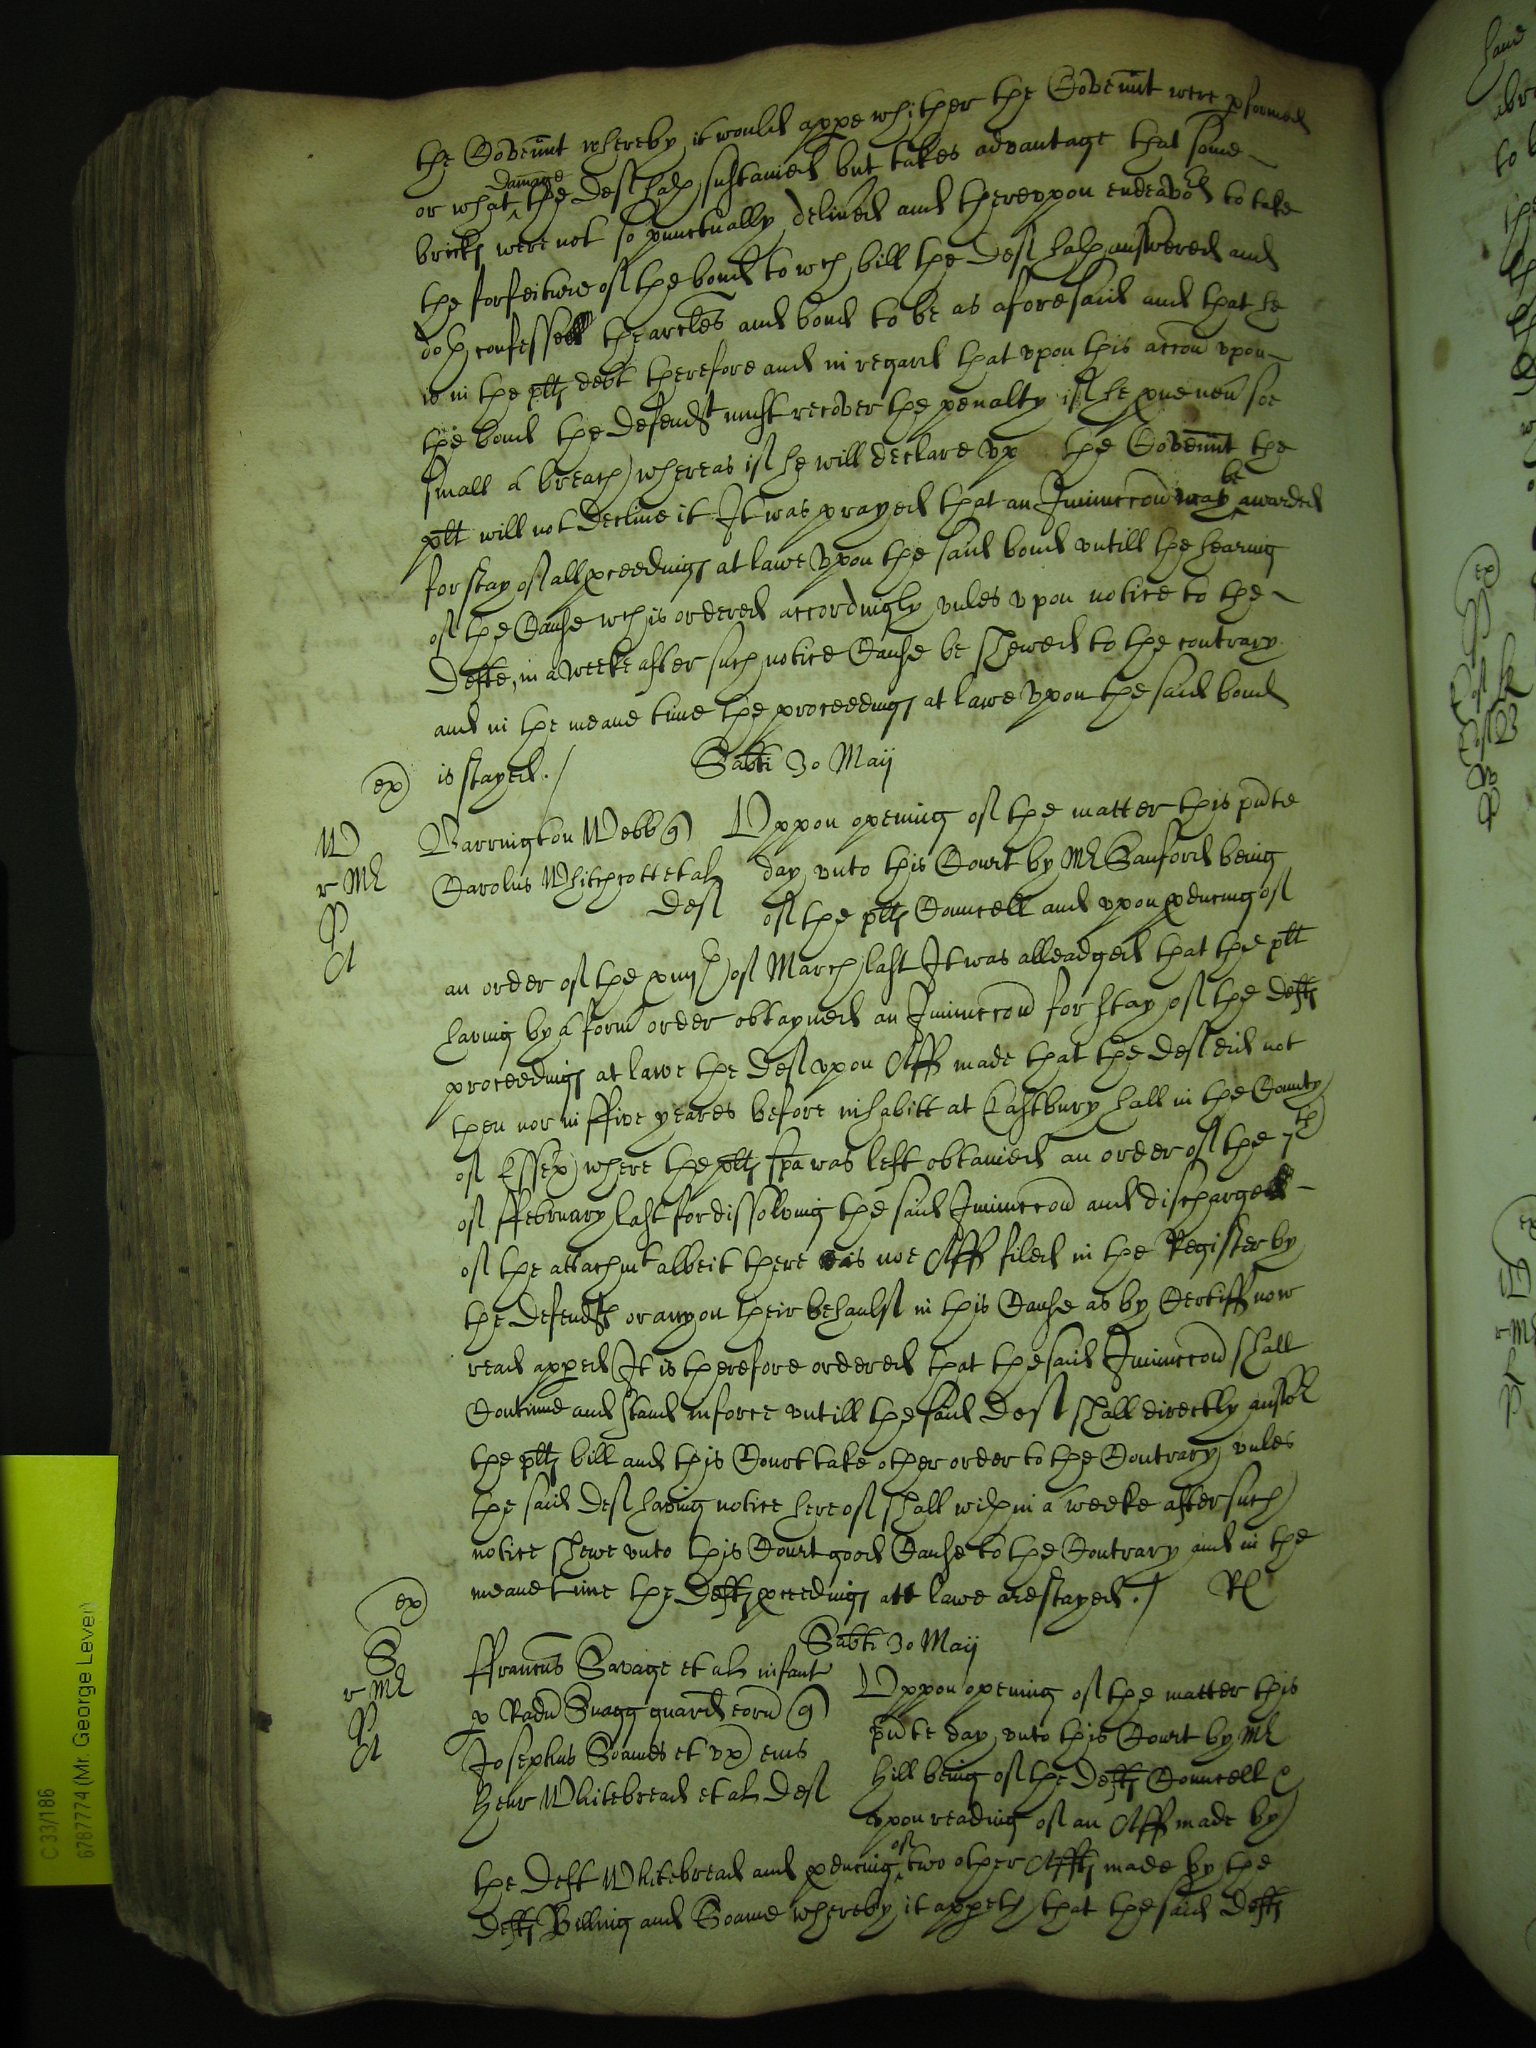 the Covennt whereby it would appe whither the Covennt were pformed
or what damage the Deft hath sustained but takes advantage that some
bricks were not so punctually delived and thereupon endeavor to take
the forfeiture of the bond to wch bill the Deft hath answered and
doth confesse the arcles and bond to be as aforesaid and that he
is in the plts debt therefore and in regard that upon this accon upon
the bond the Defendt must recover the penalty if he prove nevr soe
small a breach whereas if he will declare up the Covennt the
plt will not decline it It was prayed that an Iniunccon may be awarded
for stay of all pceedings at lawe upon the said bond untill the hearing
of the Cause wch is ordered accordingly unles upon notice to the
Defte, in a weeke after such notice Cause be shewed to the contrary
and in the meane time the proceedings at lawe upon the said bond
is stayed./
Sabti 30 Maij
ex
W
r Mr
P
A
Barrington Webb q
Carolus Whitchcott et al
Deft
Uppon opening of the matter this pnte
day unto this Court by Mr Sanford being
of the plts Councell and upon pencing of
an order of the xiiijth of March last It was alleadged that the plt
having by a form order obtayned an Iniunccon for stay of the Defts
proceedings at lawe the Deft upon Aff made that the Deft did not
then nor in ffive yeares before inhabitt at Eastbury hall in the County
of Essex where the plts spa was left obtained an order of the 7th
of ffebruary last for dissolving the said Iniunccon and discharge
of the attachmt albeit there is noe Aff filed in the Register by
the Defendts or any on their behaulf in this Cause as by Certiff now
read apped It is therefore ordered that the said Iniunccon shall
Continue and stand in force untill the said Deft shall directly answr
the plts bill and this Court take other order to the Contrary unles
the said Deft having notice hereof shall within a weeke after such
notice shewe unto this Court good Cause to the Contrary and in the
meane time the Defts pceedings att lawe are stayed./
Sabti 30 Maij
ex
S
r Mr
P
A
ffrancus Savage et al infant
p Radu Snagg guard eoru q
Josephus Soames et ux eius
Henr Whitebread et al Deft
Uppon opening of the matter this
pnte day unto this Court by Mr
Hill being of the Defts Councell &
upon reading of an Aff made by
the Deft Whitebread and pencing of two other Affts made by the
Defts Billing and Soame whereby it appeth that the said Defts
C 33/186
6787774 (Mr. George Lever)